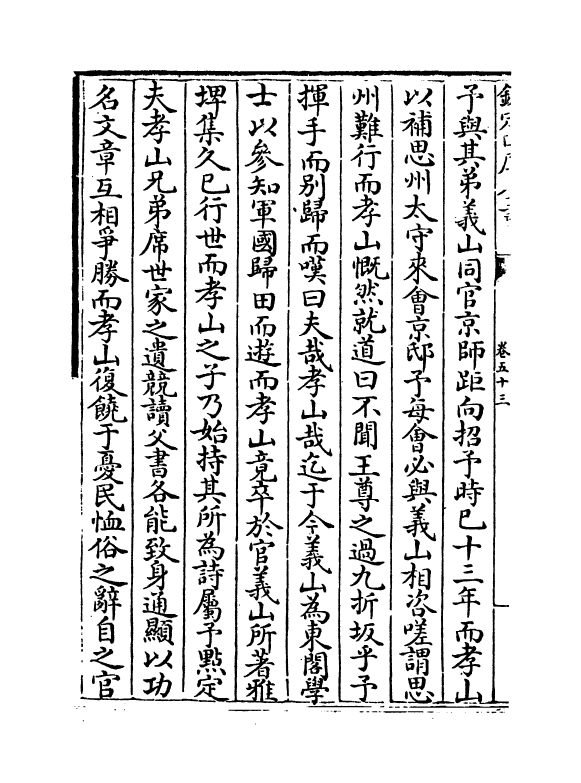 欽定四庫全書
卷五十三
予與其弟義山同官京師距向招予時已十三年而孝山
以補思州太守來會京邸予每會必與義山相咨嗟謂思
州難行而孝山慨然就道曰不聞王尊之過九折坂乎予
揮手而別歸而嘆曰夫哉孝山哉迄于今義山為東閣學
士以參知軍國歸田而遊而孝山竟卒於官義山所著雅
埤集久已行世而孝山之子乃始持其所為詩屬予㸃定
夫孝山兄弟席世家之遺競讀父書各能致身通顯以功
名文章互相爭勝而孝山復饒于憂民恤俗之辭自之官